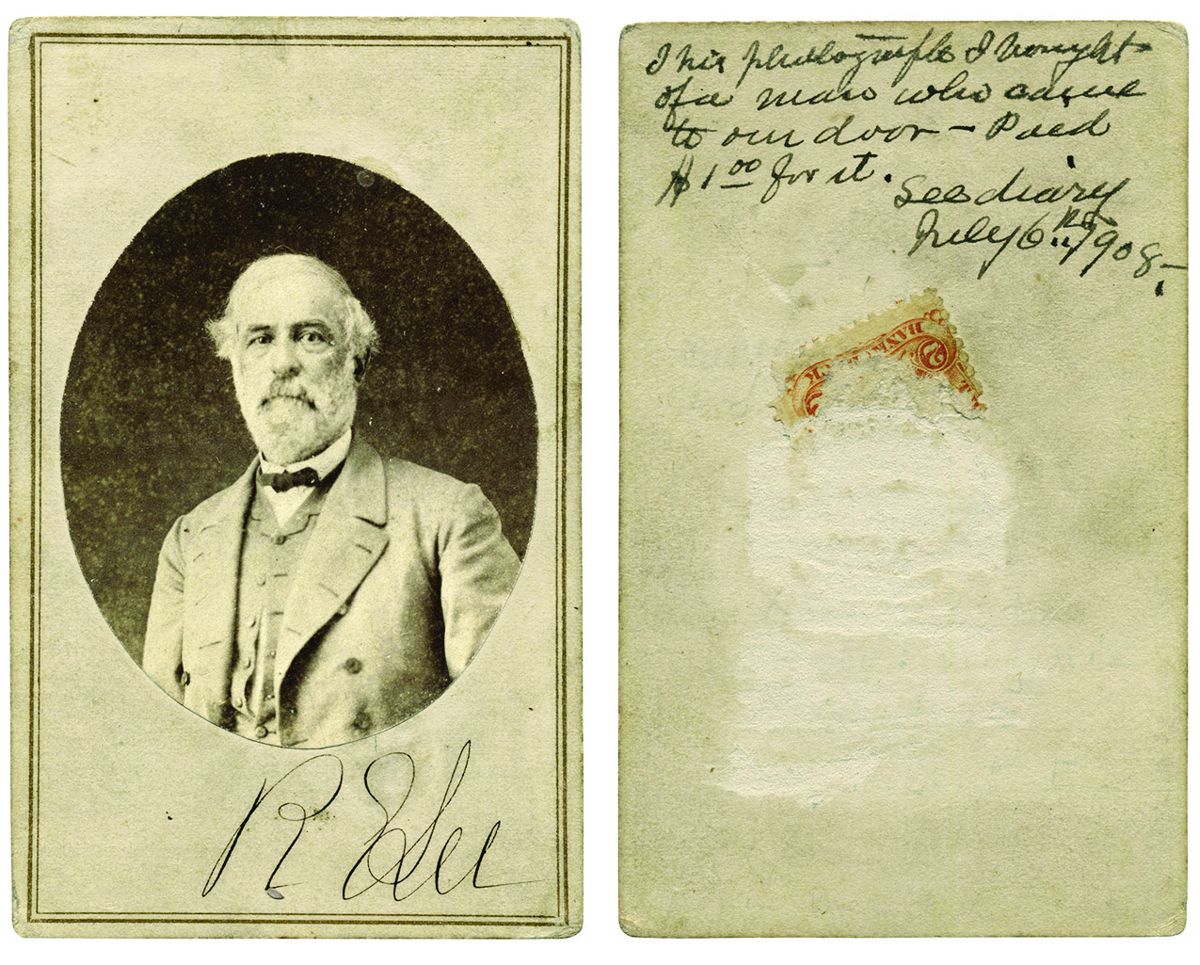 R E Lee
This photograph I bought
of a man who came
to our door - Paid
$1 00 for it.
See diary
July 6 1908
2
BANK